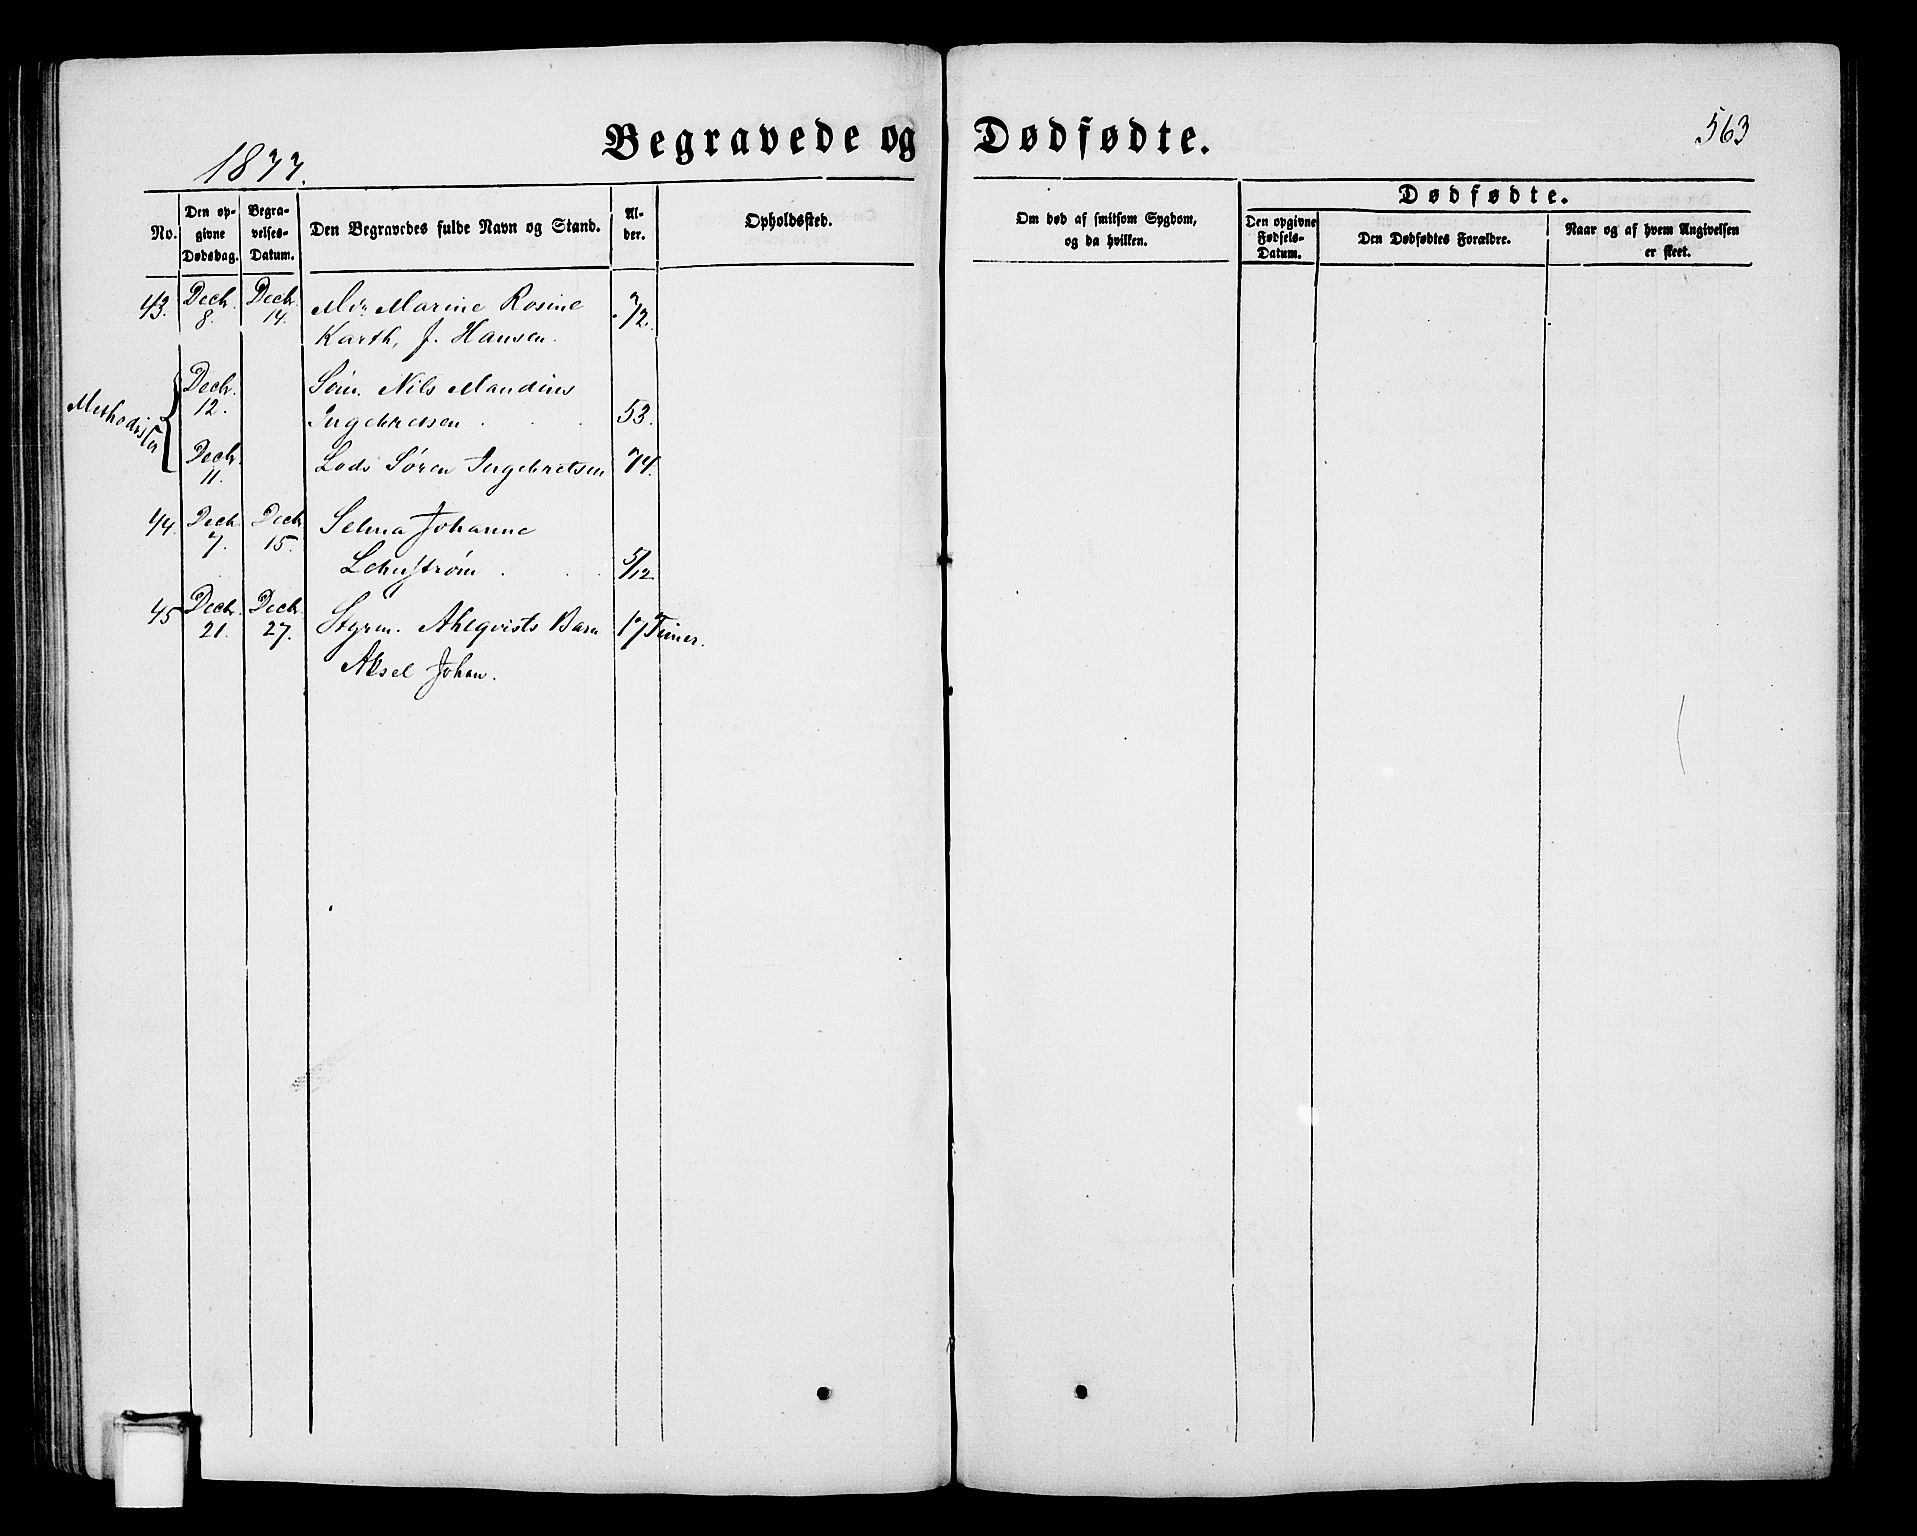 Begravede og Dødfødte.
563
1877.
Dødfødte.
No.
Den op-
givne
Dødsdag.
Begra-
velses-
Datum.
Den Begravedes fulde Navn og Stand.
Al-
der.
Opholdssted.
Om død af smitsom Sygdom,
og da hvilken.
Den opgivne
Fødsels-
Datum.
Den Dødfødtes Forældre.
Naar og af hvem Angivelsen
er skeet.
43. Decbr. 8. Decbr. 14. Marine Rosine 72.
Karth, J. Hansen.
Methodister
Decbr. 12. Søm. Nils Mandius
Ingebretsen . . . 53.
Decbr. 11. Lods Søren Ingebretsen 74.
44. Decbr. 7. Decbr. 15. Selma Johanne
. . . 5/12
45 Decbr. 21. Decbr. 27. Styrm. Ahlqvists Barn 17 Timer.
Aksel Johan.